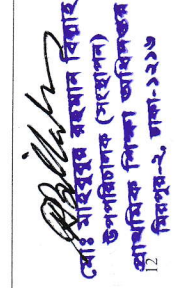 মোঃ মাহবুবুর রহমান বিল্লাহ
উপপরিচালক (সংস্থাপন)
প্রাথমিক শিক্ষা অধিদপ্তর
মিরপুর-২, ঢাকা-১২১৬
12